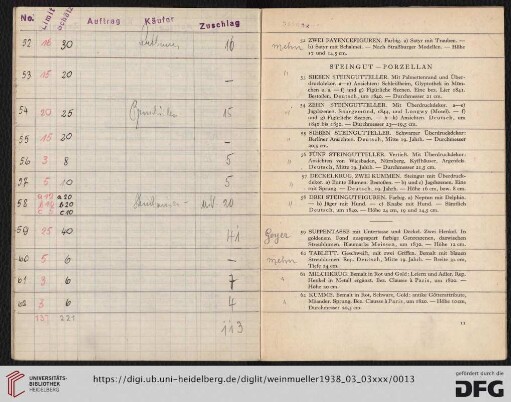 No. Limit Schätz. Auftrag Käufer Zuschlag
52 16 30 16
53 15 20 —
54 20 25 15
55 15 30 —
56 3 8 5
57 5 10 5
58 a 20 b 20 c 10 20
59 25 40 41
60 5 6 —
61 3 6 7
62 3 6 4
137 221
113
mehn
52 ZWEI FAYENCEFIGUREN. Farbig. a) Satyr mit Trauben. —
b) Satyr mit Schalmei. — Nach Straßburger Modellen. — Höhe
17 und 14,5 cm.
STEINGUT – PORZELLAN
53 SIEBEN STEINGUTTELLER. Mit Palmettenrand und Über-
druckdekor. a—e) Ansichten: Schleißheim, Glyptothek in Mün-
chen u. a. — f) und g) Figürliche Szenen. Eine bez. Lier 1841.
Bestoßen. Deutsch, um 1840. — Durchmesser 21 cm.
54 ZEHN STEINGUTTELLER. Mit Überdruckdekor. a—e)
Jagdszenen. Saargemünd, 1844, und Longwy (Mosel). — f)
und g) Figürliche Szenen. — h—k) Ansichten. Deutsch, um
1840 bis 1850. — Durchmesser 23—19,5 cm.
55 SIEBEN STEINGUTTELLER. Schwarzer Überdruckdekor:
Berliner Ansichten. Deutsch, Mitte 19. Jahrh. — Durchmesser
20,5 cm.
56 FÜNF STEINGUTTELLER. Vertieft. Mit Überdruckdekor:
Ansichten von Wiesbaden, Nürnberg, Kyffhäuser, Argenfels.
Deutsch, Mitte 19. Jahrh. — Durchmesser 21,5 cm.
57 DECKELKRUG, ZWEI KUMMEN. Steingut mit Überdruck-
dekor. a) Bunte Blumen. Bestoßen. — b) und c) Jagdszenen. Eine
mit Sprung. — Deutsch, 19. Jahrh. — Höhe 16 cm, bzw. 8 cm.
58 DREI STEINGUTFIGUREN. Farbig. a) Neptun mit Delphin.
— b) Jäger mit Hund. — c) Knabe mit Hund. — Sämtlich
Deutsch, um 1820. — Höhe 24 cm, 19 und 14,5 cm.
Geyer
59 SUPPENTASSE mit Untertasse und Deckel. Zwei Henkel. In
goldenem Fond ausgespart farbige Genreszenen, dazwischen
Streublumen. Blaumarke Meissen, um 1830. — Höhe 12 cm.
mehn
60 TABLETT. Geschweift, mit zwei Griffen. Bemalt mit blauen
Streublumen. Rep. Deutsch, Mitte 19. Jahrh. — Breite 32 cm,
Tiefe 24 cm.
61 MILCHKRUG. Bemalt in Rot und Gold: Leiern und Adler. Rep.
Henkel in Metall ergänzt. Bez. Clausse à Paris, um 1820. —
Höhe 20 cm.
62 KUMME. Bemalt in Rot, Schwarz, Gold: antike Götterattribute,
Mäander. Sprung. Bez. Clausse à Paris, um 1820. — Höhe 10 cm,
Durchmesser 20,5 cm.
11
UNIVERSITÄTS-
BIBLIOTHEK
HEIDELBERG
https://digi.ub.uni-heidelberg.de/diglit/weinmueller1938_03_03xxx/0013
gefördert durch die
DFG